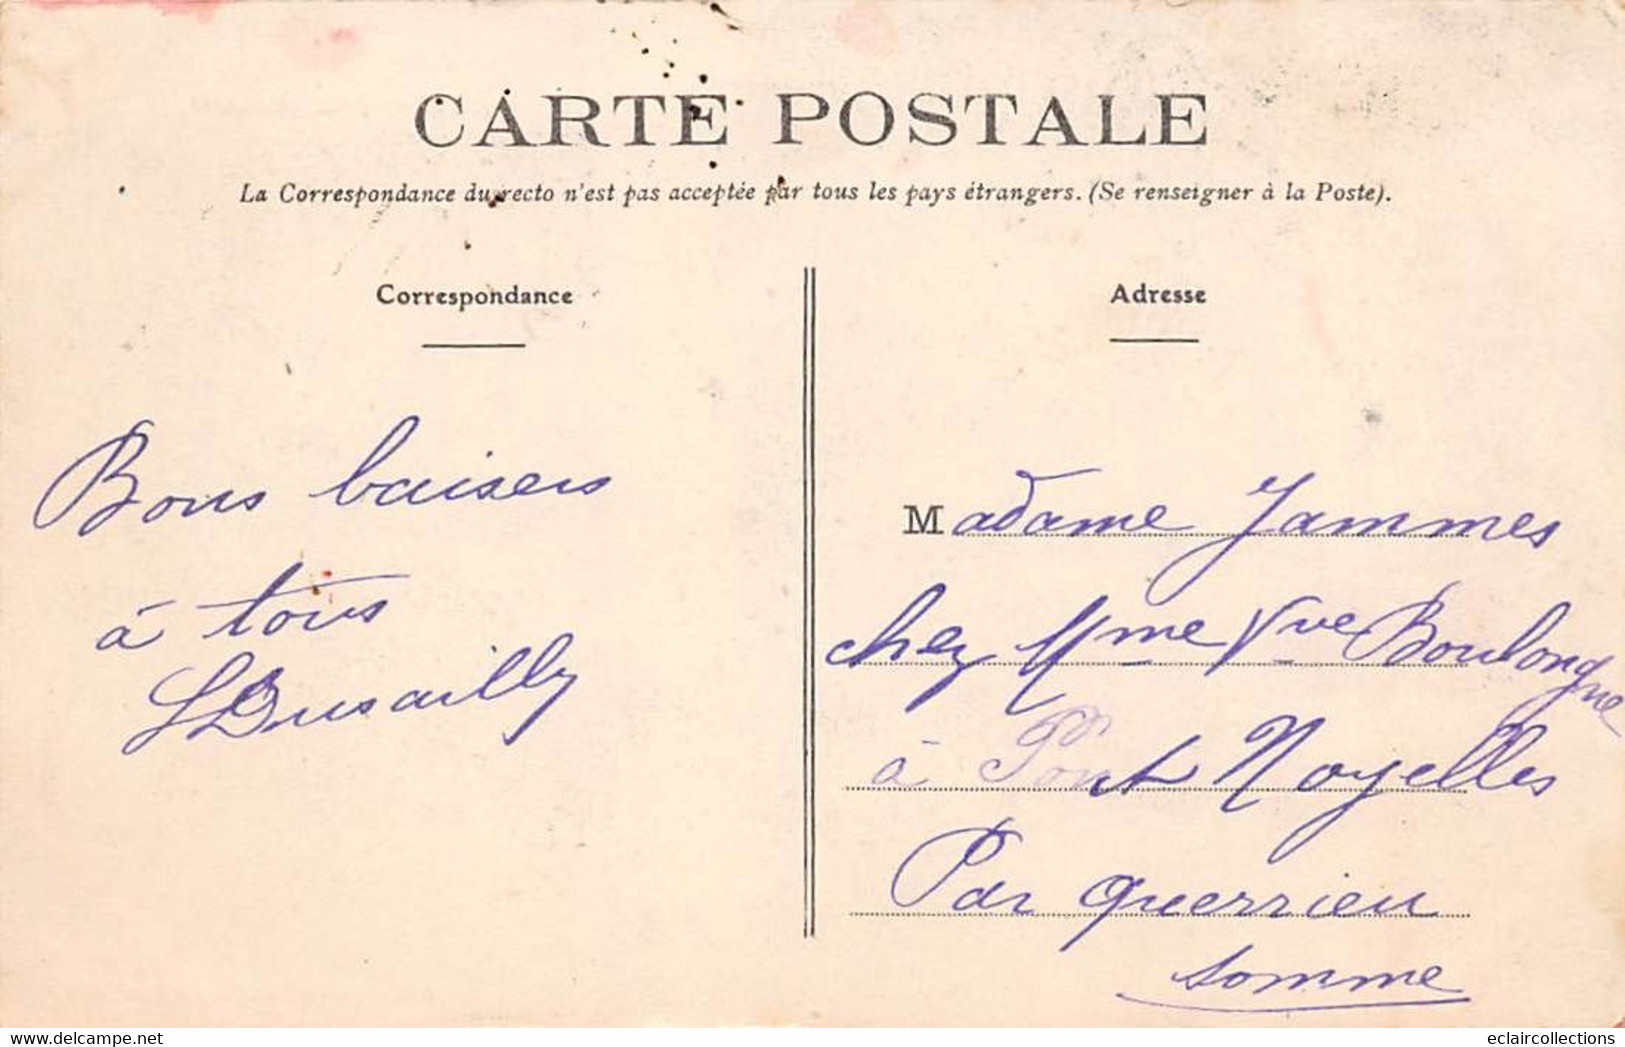 CARTE POSTALE
La Correspondance du recto n'est pas acceptée par tous les pays étrangers. (Se renseigner à la Poste).
Correspondance
Bons baisers
à tous
LDusailly
Adresse
Madame Jammes
chez Mme Vve Boulongne
à Pont Noyelles
Par Querrieu
Somme
eclaircollections